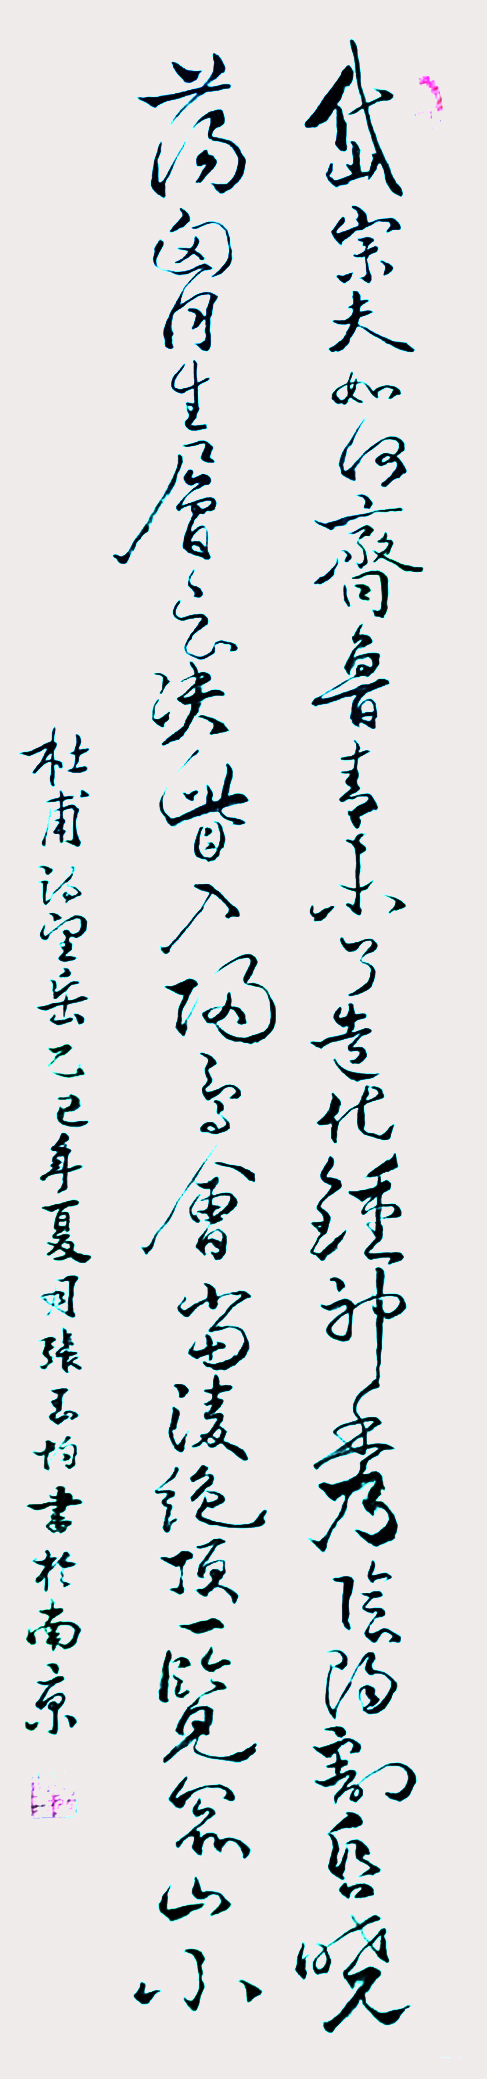 岱宗夫如何齊魯青未了造化鍾神秀陰陽割昏曉
蕩胸生層云決眥入歸鳥會當凌絕頂一覽眾山小
杜甫詩望岳乙巳年夏月張玉均書於南京